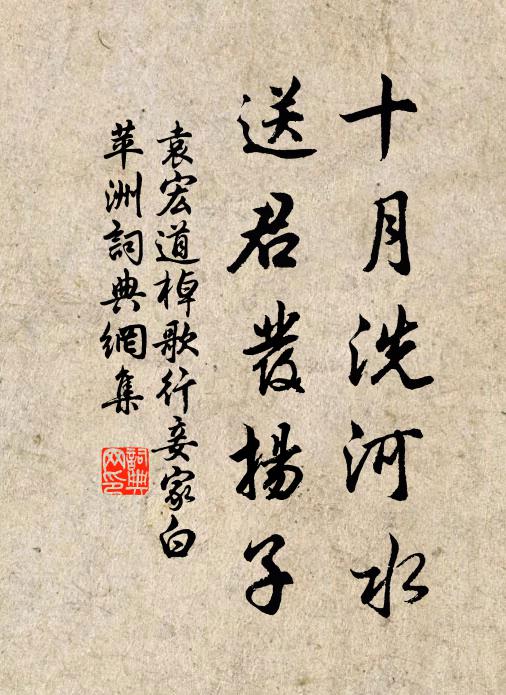 十月洗河水
送君發揚子
袁宏道棹歌行妾家白
苹洲詞典網集
詞典網印